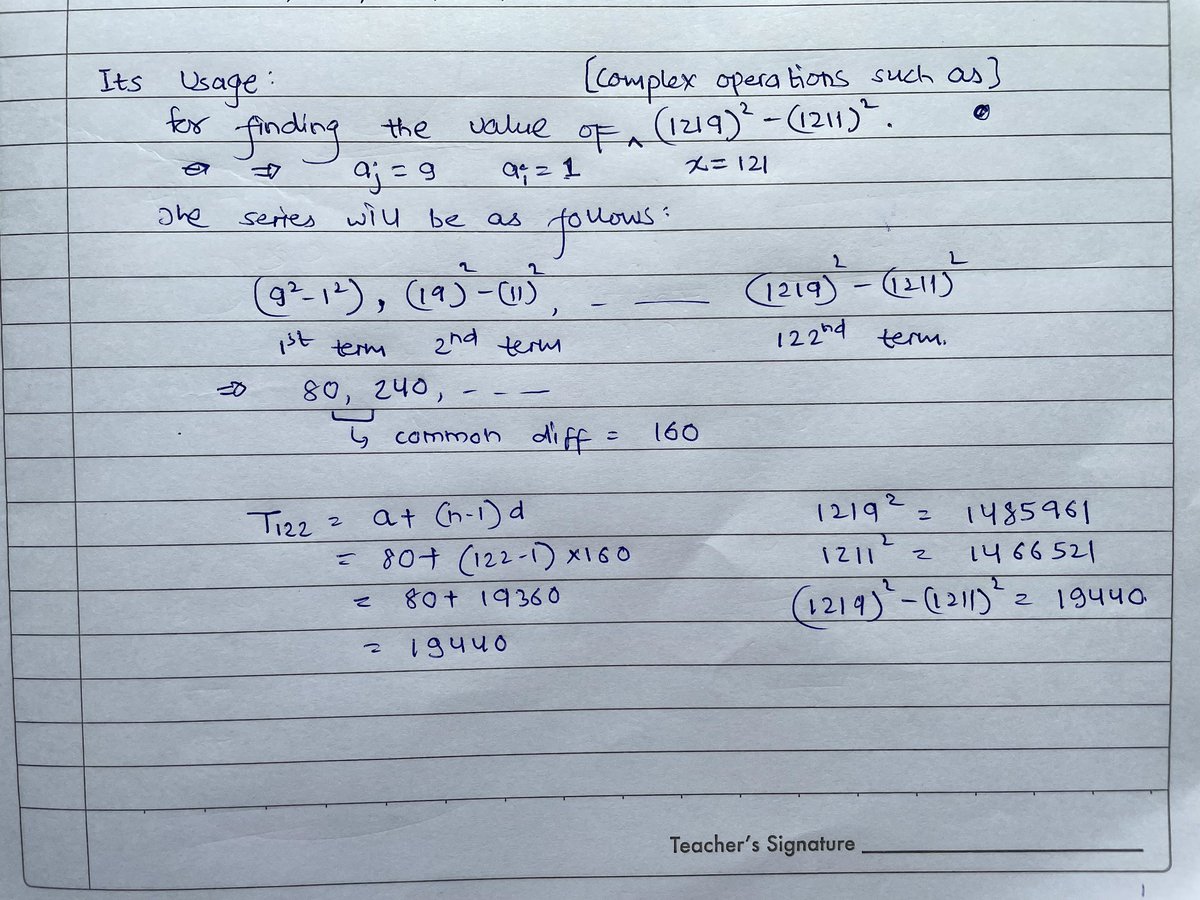 Its Usage: [complex operations such as]
for finding the value of ^ (1219)² - (1211)².
⇒ aj = 9 ai = 1 x = 121
The series will be as follows:
(9² - 1²), (19)² - (11)², - —— (1219)² - (1211)²
1st term 2nd term 122nd term.
⇒ 80, 240, - - —
↳ common diff = 160
T122 = a + (n-1) d 1219² = 1485961
= 80 + (122-1) × 160 1211² = 1466521
= 80 + 19360 (1219)² - (1211)² = 19440.
= 19440
Teacher's Signature
1